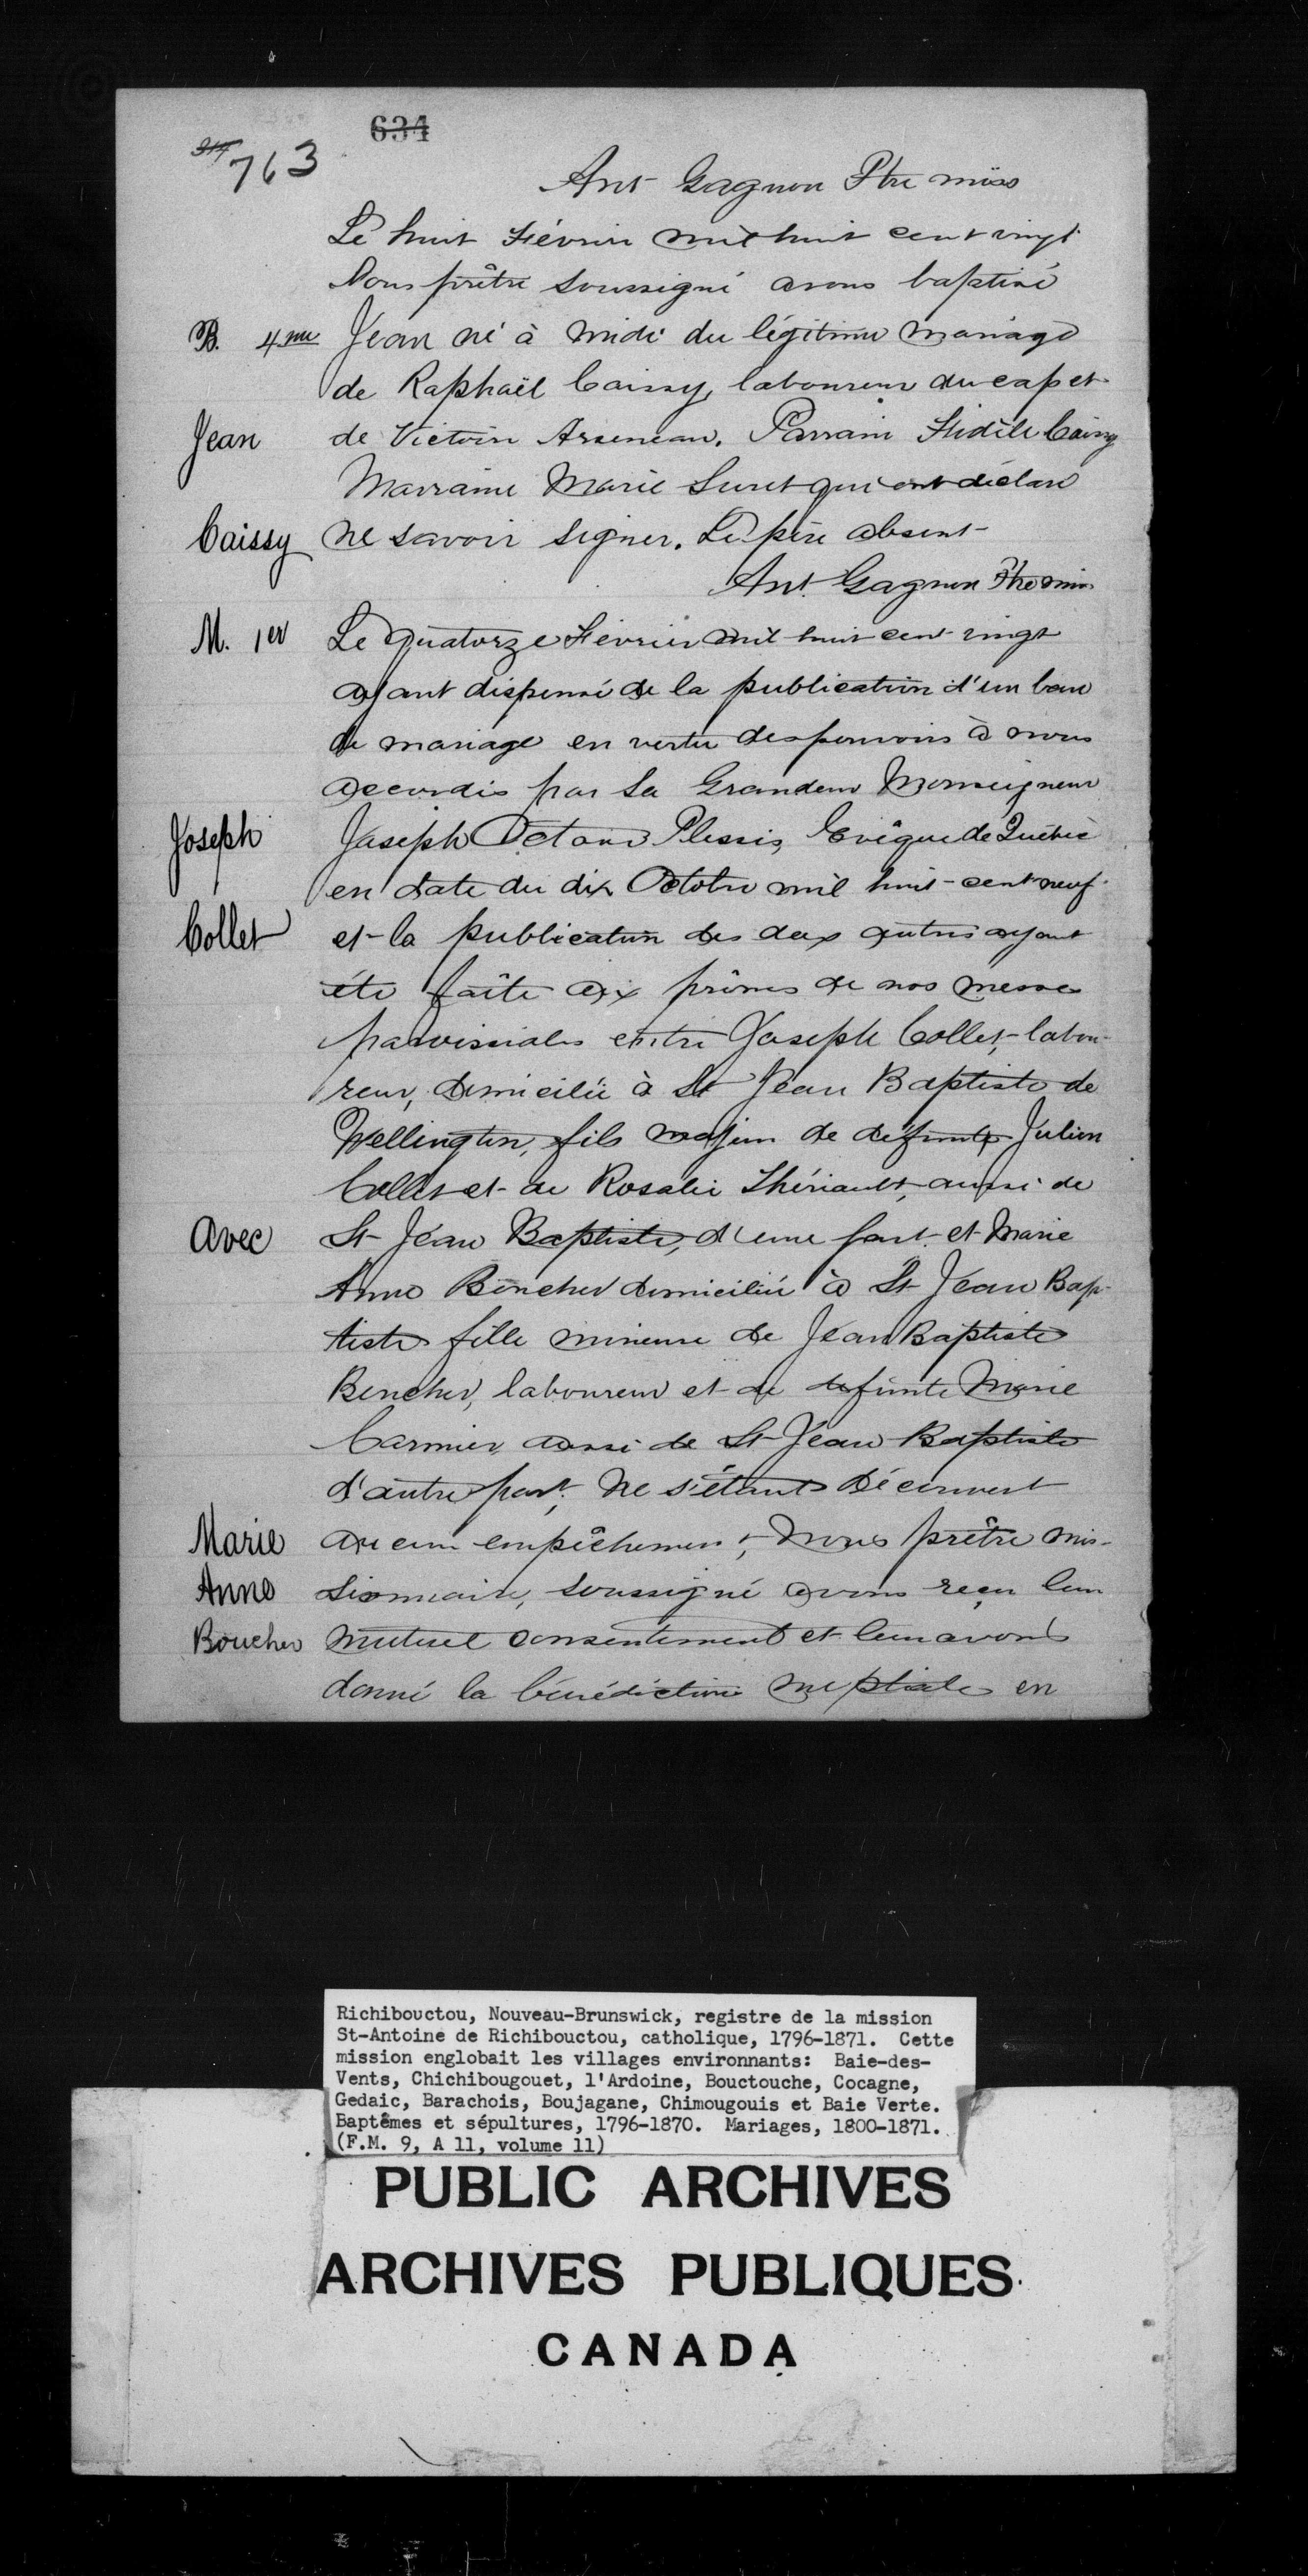 634
314
763
Ant Gagnon Ptre miss
Le huit Février mil huit cent vingt
Nous prêtre soussigné avons baptisé
B. 4me Jean né à midi du légitime mariage
de Raphaël Caissy, laboureur du cap et
Jean de Victoire Arseneau. Parrain Fidèle Caissy
Marraine Marie Suret qui ont déclaré
Caissy ne savoir signer. Le père absent
Ant. Gagnon Ptre miss
M. 1er Le quatorze Février mil huit cent vingt
ayant dispensé de la publication d'un ban
de mariage en vertu des pouvoirs à nous
accordés par Sa Grandeur Monseigneur
Joseph Joseph Octave Plessis, Evêque de Québec
en date du dix Octobre mil huit-cent neuf
Collet et la publication des deux autres ayant
été faîte aux prônes de nos messes
paroissiales entre Joseph Collet, labou-
reur, domicilié à St Jean Baptiste de
Wellington, fils majeur de défunts Julien
Collet et de Rosalie Thériault, aussi de
Avec St Jean Baptiste, d'une part et Marie
Anne Boucher domiciliée à St Jean Bap-
tiste fille mineure de Jean Baptiste
Boucher, laboureur et de defunte Marie
Cormier aussi de St Jean Baptiste
d'autre part, ne s'étant découvert
Marie aucun empêchement, Nous prêtre mis-
Anne sionnaire, soussigné avons reçu leur
Boucher mutuel consentement et leur avons
donné la bénédiction nuptiale en
Richibouctou, Nouveau-Brunswick, registre de la mission
St-Antoine de Richibouctou, catholique, 1796-1871. Cette
mission englobait les villages environnants: Baie-des-
Vents, Chichibougouet, l'Ardoine, Bouctouche, Cocagne,
Gedaic, Barachois, Boujagane, Chimougouis et Baie Verte.
Baptêmes et sépultures, 1796-1870. Mariages, 1800-1871.
(F.M. 9, A 11, volume 11)
PUBLIC ARCHIVES
ARCHIVES PUBLIQUES
CANADA